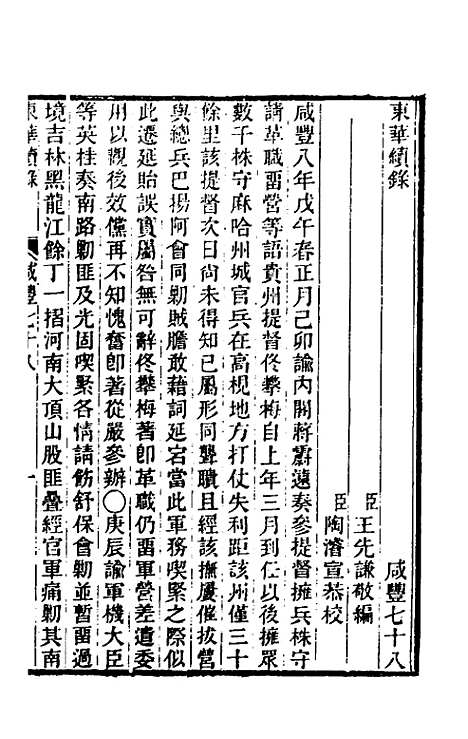 東華續錄
咸豐七十八
臣王先謙敬編
臣陶濬宣恭校
咸豐八年戊午春正月己卯諭內閣蔣霨遠奏參提督擁兵株守
請革職留營等語貴州提督佟攀梅自上年三月到任以後擁眾
數千株守麻哈州城官兵在高梘地方打仗失利距該州僅三十
餘里該提督次日尚未得知已屬形同聾聵且經該撫屢催拔營
與總兵巴揚阿會同剿賊膽敢藉詞延宕當此軍務喫緊之際似
此遷延貽誤實屬咎無可辭佟攀梅著即革職仍留軍營差遣委
用以觀後效儻再不知愧奮即著從嚴參辦〇庚辰諭軍機大臣
等英桂奏南路剿匪及光固喫緊各情請飭舒保會剿並暫留過
境吉林黑龍江餘丁一摺河南大頂山股匪疊經官軍痛剿其南
東華續錄
咸豐七十八
一